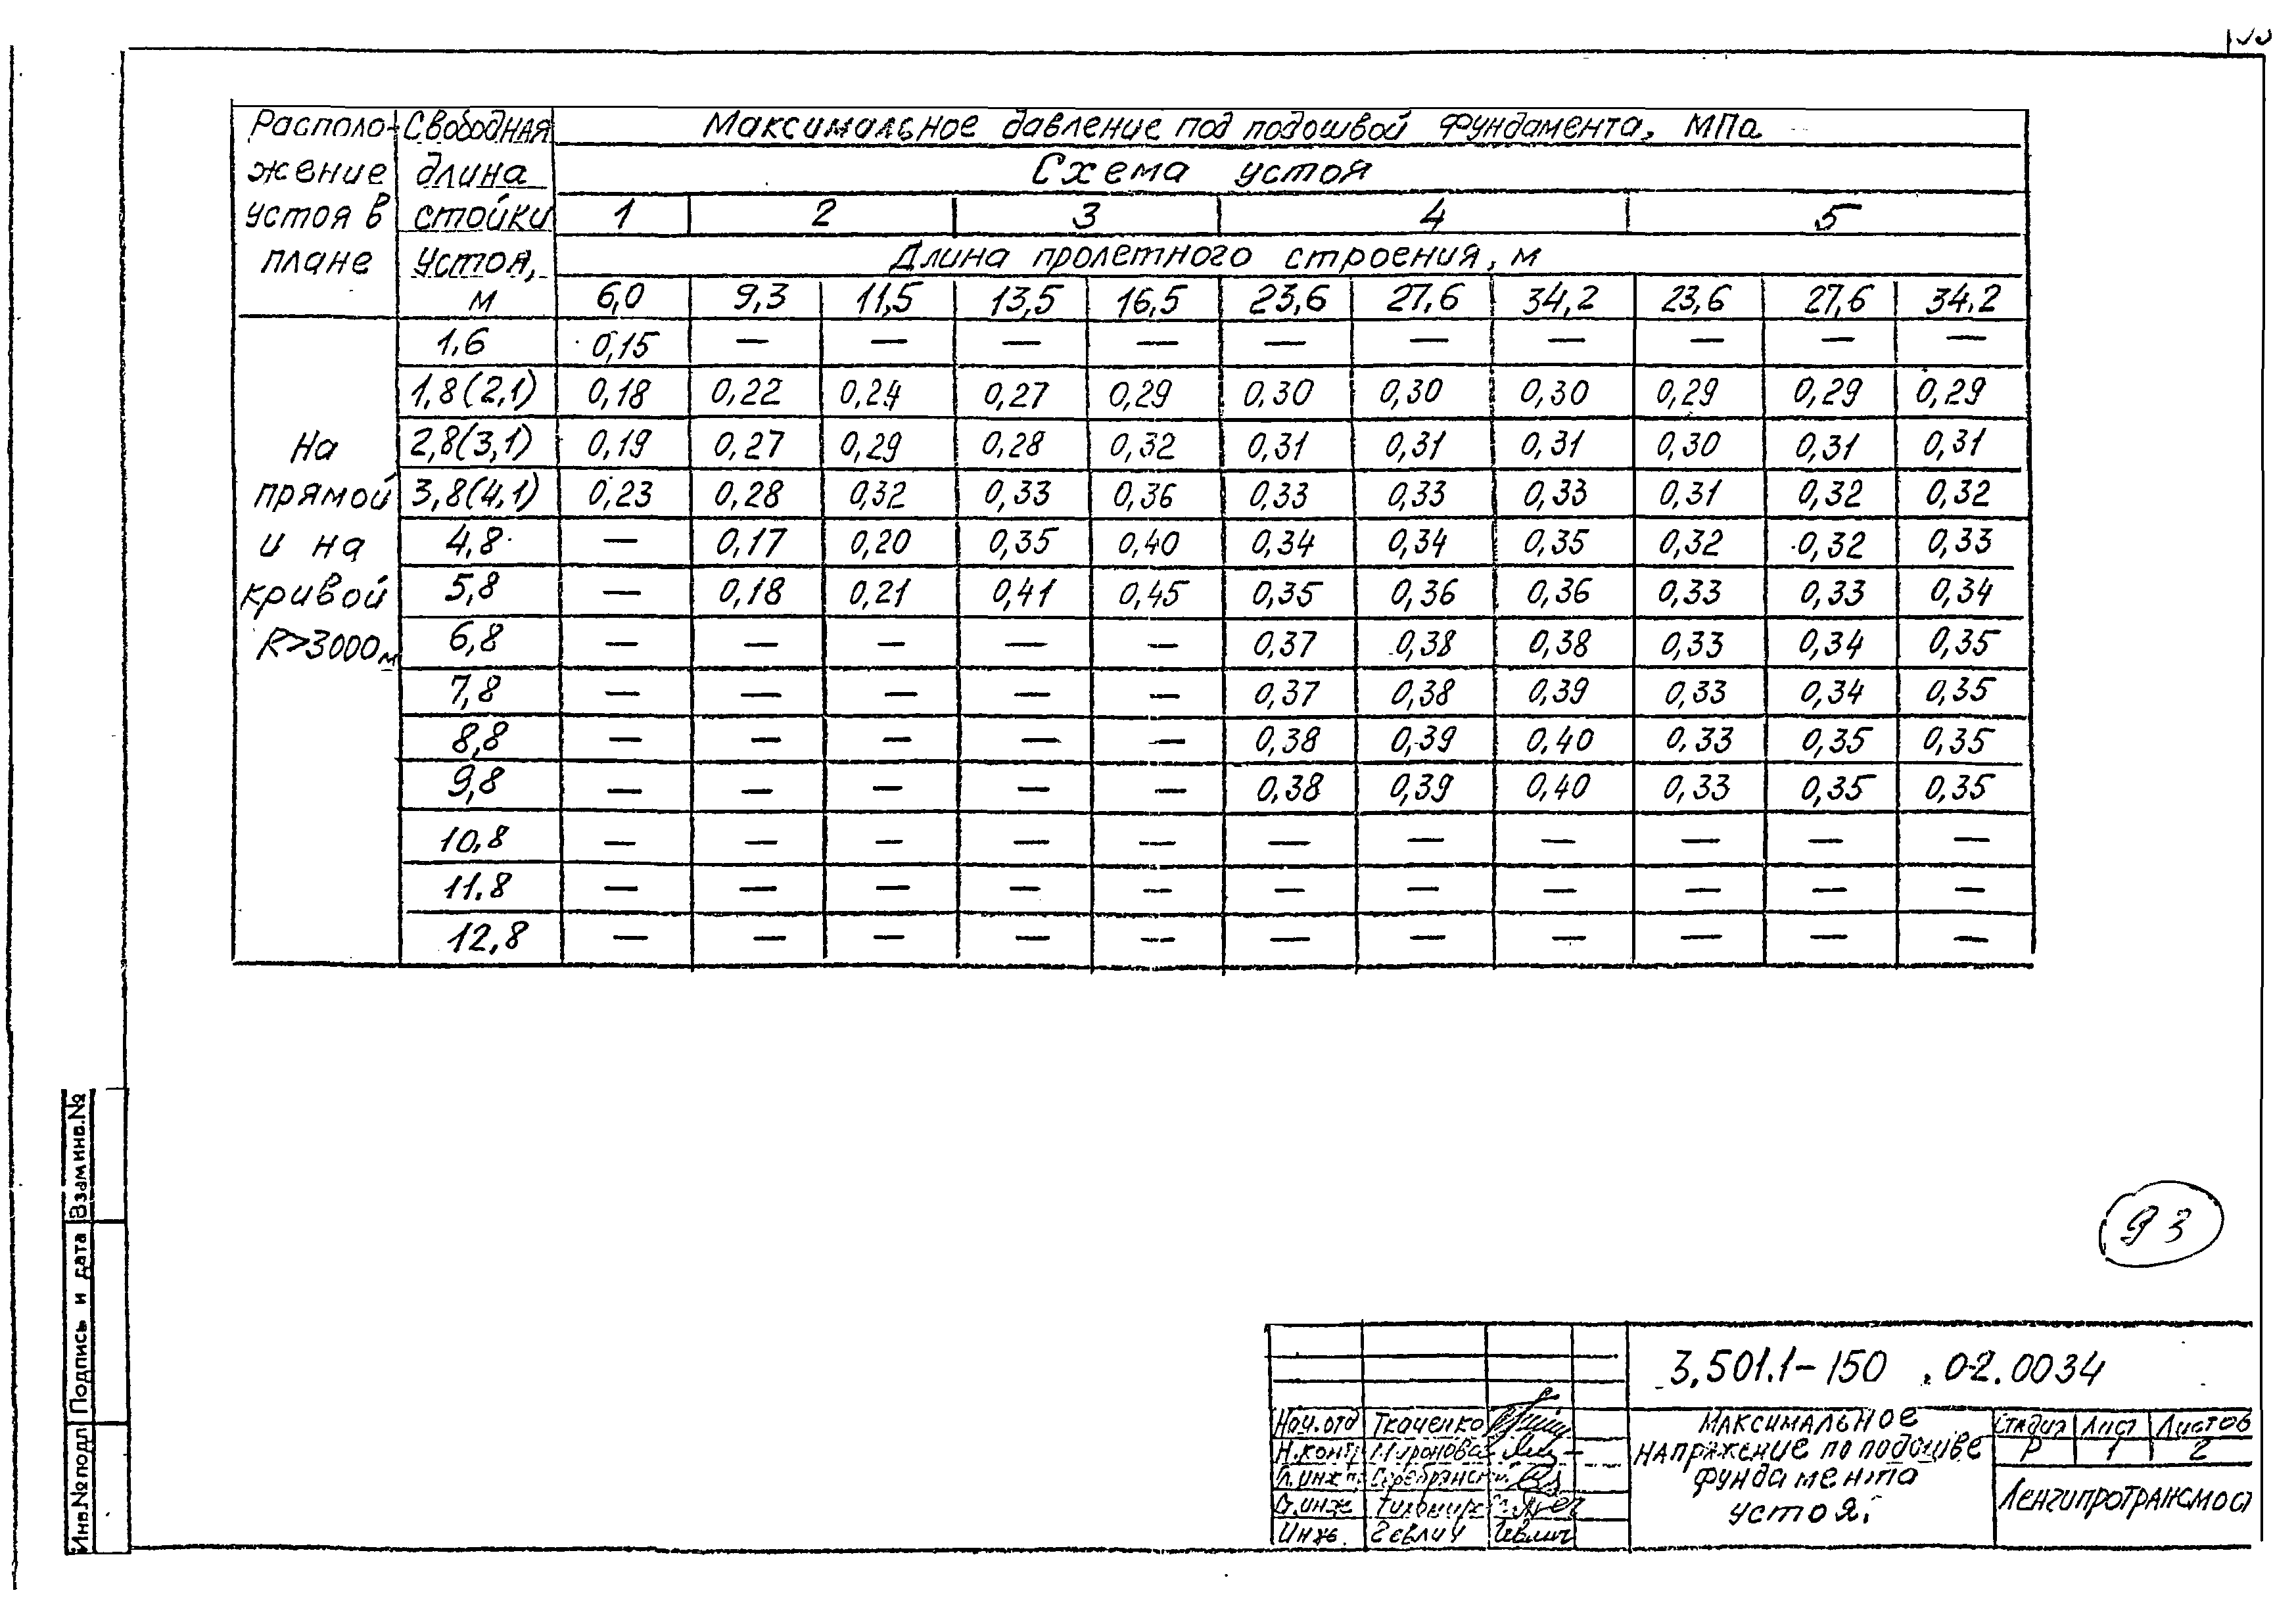 Располо- Свободная Максимальное давление под подошвой фундамента, МПа
жение длина Схема устоя
устоя в стойки 1 2 3 4 5
плане устоя, Длина пролетного строения, м
м 6,0 9,3 11,5 13,5 16,5 23,6 27,6 34,2 23,6 27,6 34,2
1,6 0,15 — — — — — — — — — —
1,8(2,1) 0,18 0,22 0,24 0,27 0,29 0,30 0,30 0,30 0,29 0,29 0,29
На 2,8(3,1) 0,19 0,27 0,29 0,28 0,32 0,31 0,31 0,31 0,30 0,31 0,31
прямой 3,8(4,1) 0,23 0,28 0,32 0,33 0,36 0,33 0,33 0,33 0,31 0,32 0,32
и на 4,8 — 0,17 0,20 0,35 0,40 0,34 0,34 0,35 0,32 0,32 0,33
кривой 5,8 — 0,18 0,21 0,41 0,45 0,35 0,36 0,36 0,33 0,33 0,34
R>3000м 6,8 — — — — — 0,37 0,38 0,38 0,33 0,34 0,35
7,8 — — — — — 0,37 0,38 0,39 0,33 0,34 0,35
8,8 — — — — — 0,38 0,39 0,40 0,33 0,35 0,35
9,8 — — — — — 0,38 0,39 0,40 0,33 0,35 0,35
10,8 — — — — — — — — — — —
11,8 — — — — — — — — — — —
12,8 — — — — — — — — — — —
93
Инв.№ подл Подпись и дата Взам инв.№
3.501.1-150 .02.0034
Нач.отд Ткаченко
Н.контр Миронова
Гл.инж.пр Серебрянский
Ст.инж
Инж. Гевлич
Максимальное
напряжение по подошве
фундамента
устоя.
Стадия Лист Листов
Р 1 2
Ленгипротрансмост